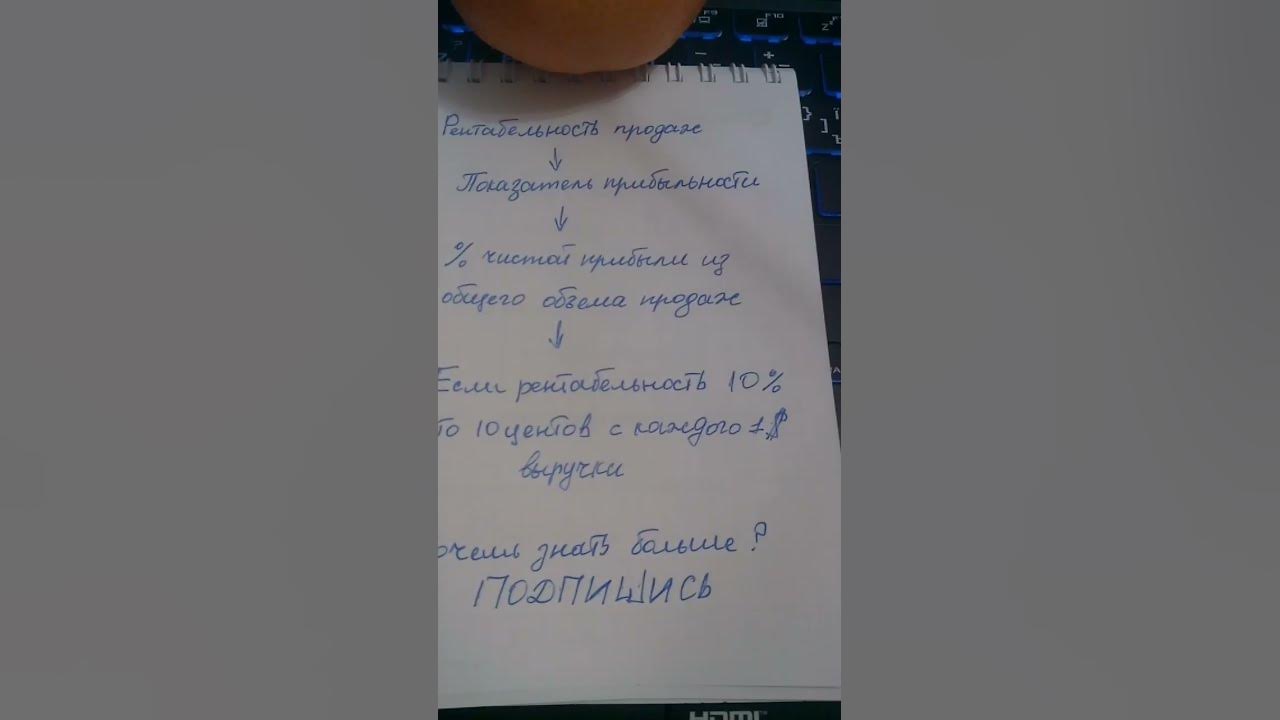 Рентабельность продаж
↓
Показатель прибыльности
↓
% чистой прибыли из
общего обзема продаж
↓
Если рентабельность 10%
то 10 центов с каждого 1$
выручки
очешь знать больше?
ПОДПИШИСЬ
F9
F10
HDMI